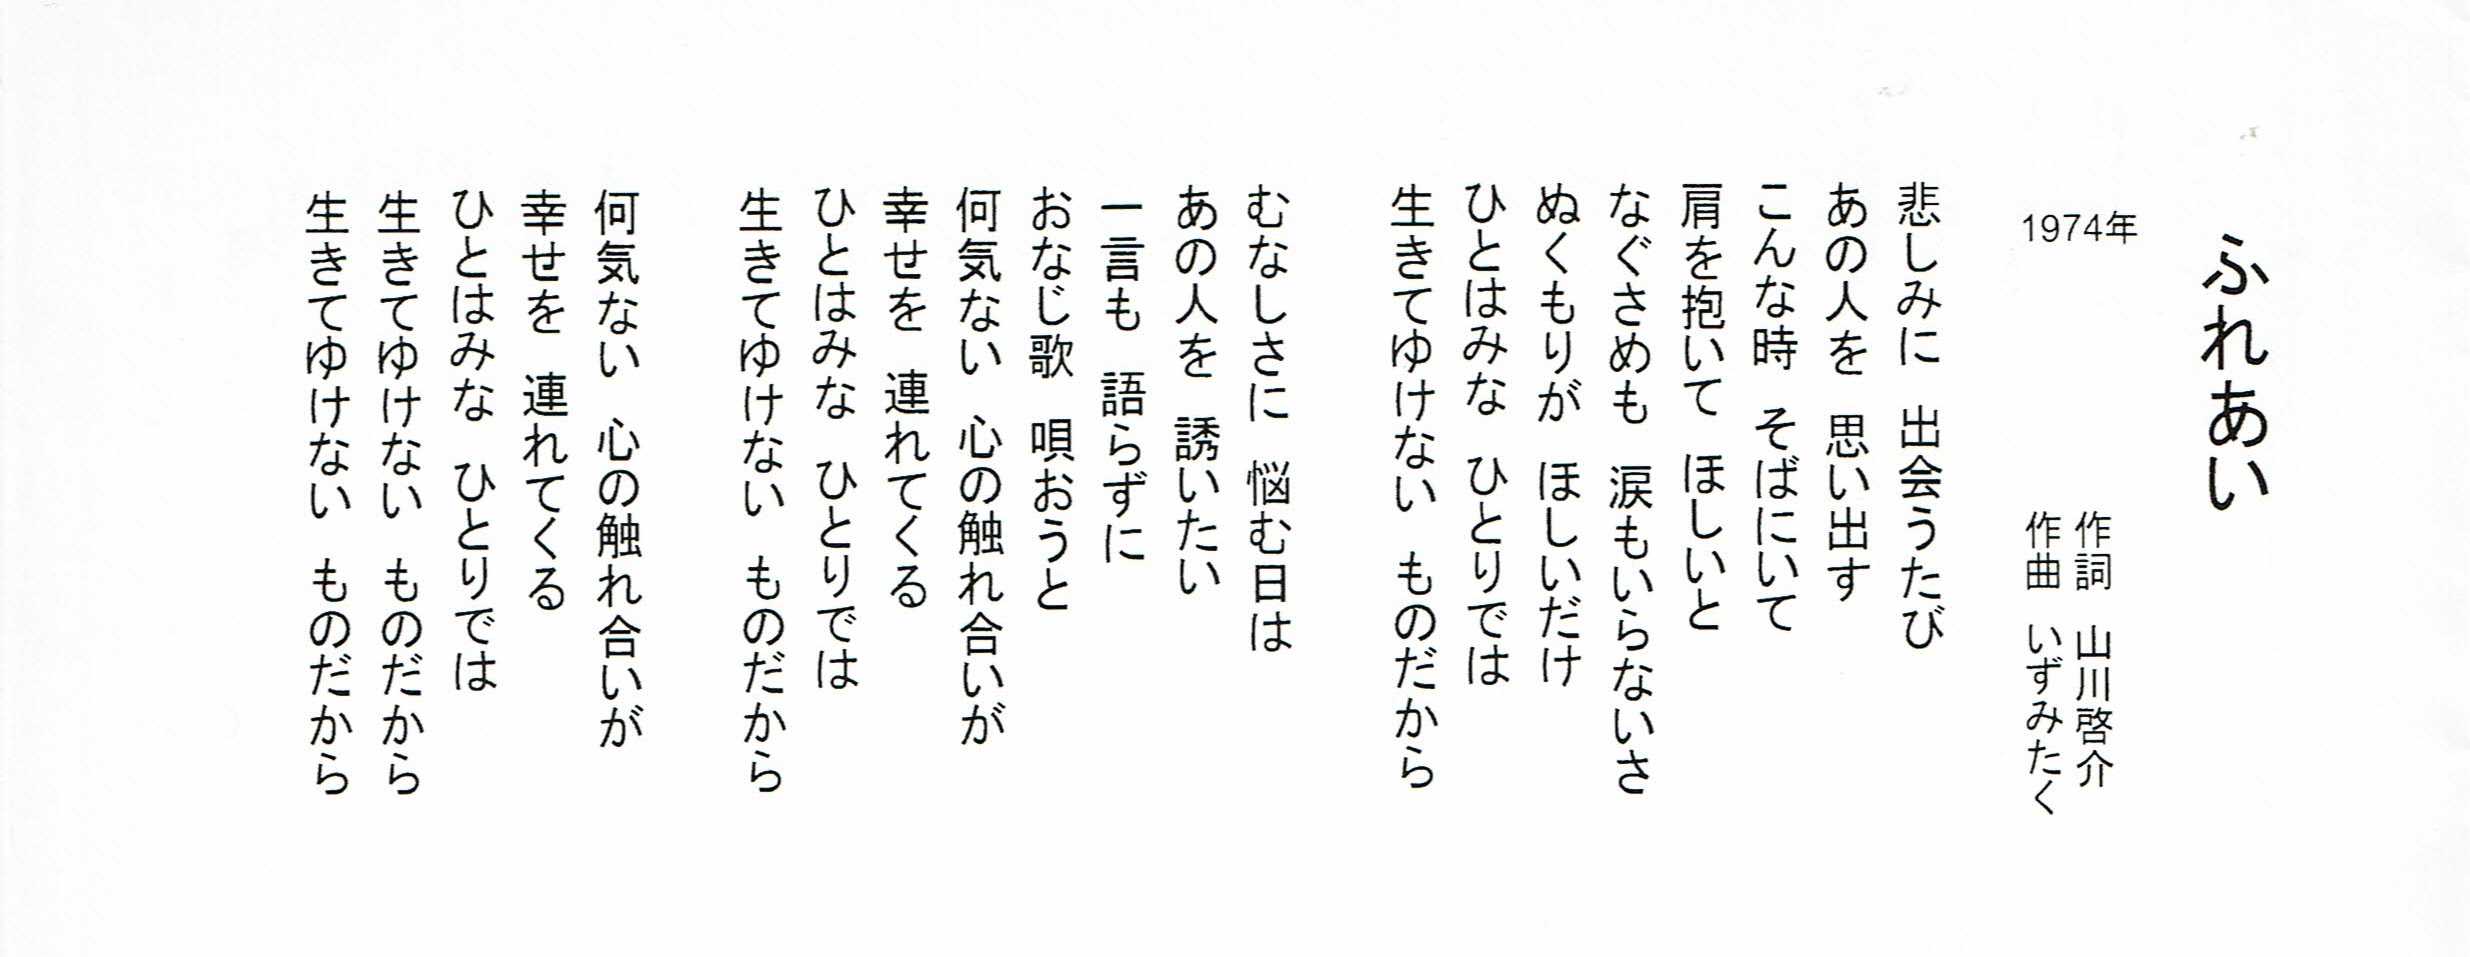 ふれあい
1974年
作詞 山川啓介
作曲 いずみたく
悲しみに 出会うたび
あの人を 思い出す
こんな時 そばにいて
肩を抱いて ほしいと
なぐさめも 涙もいらないさ
ぬくもりが ほしいだけ
ひとはみな ひとりでは
生きてゆけない ものだから
むなしさに 悩む日は
あの人を 誘いたい
一言も 語らずに
おなじ歌 唄おうと
何気ない 心の触れ合いが
幸せを 連れてくる
ひとはみな ひとりでは
生きてゆけない ものだから
何気ない 心の触れ合いが
幸せを 連れてくる
ひとはみな ひとりでは
生きてゆけない ものだから
生きてゆけない ものだから